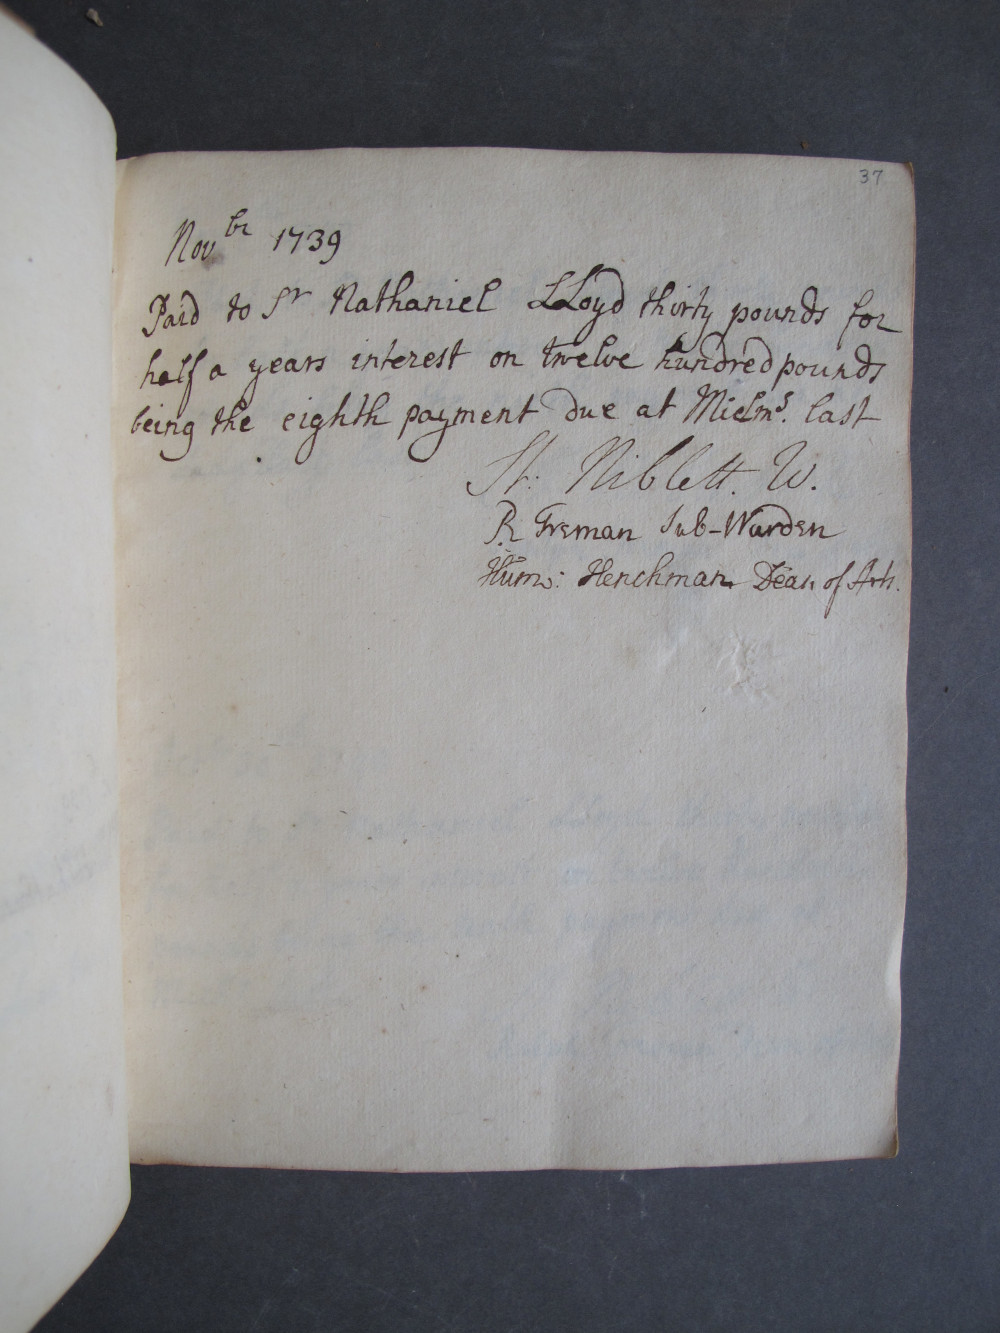 37
Nov^br 1739
Paid to S^r Nathaniel LLoyd thirty pounds for
half a years interest on twelve hundred pounds
being the eighth payment due at Miclm^s. last
St: Niblett. W.
R Freman Sub-Warden
Hum: Henchman Dean of Arts.